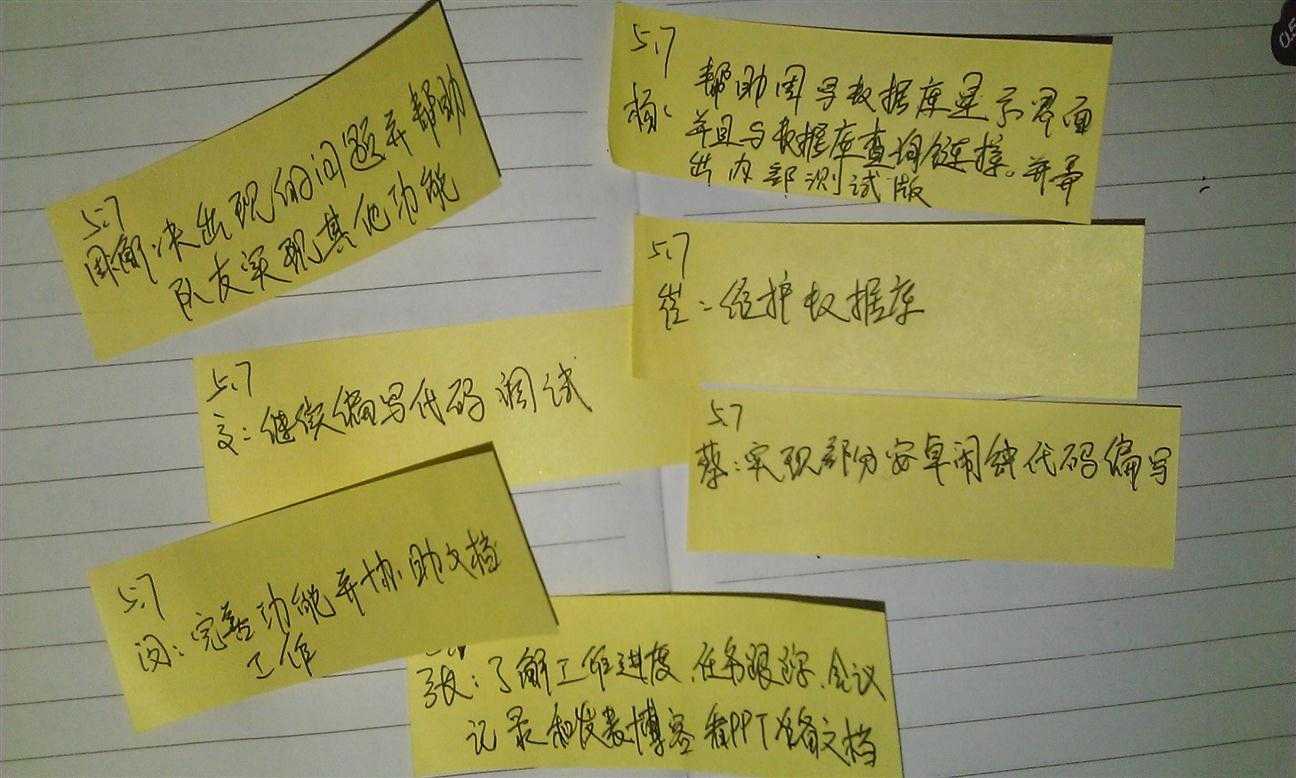 5.7
周:解决出现的问题并帮助
队友实现其他功能
5.7
杨:帮助周写数据库显示界面
并且与数据库查询链接。并弄
出内部测试版
5.7
崔:维护数据库
5.7
文:继续编写代码 调试
5.7
蔡:实现部分安卓闹钟代码编写
5.7
闵:完善功能并协助文档
工作
张:了解工作进度、任务跟踪、会议
记录和发表博客 看PPT准备文档
0.5